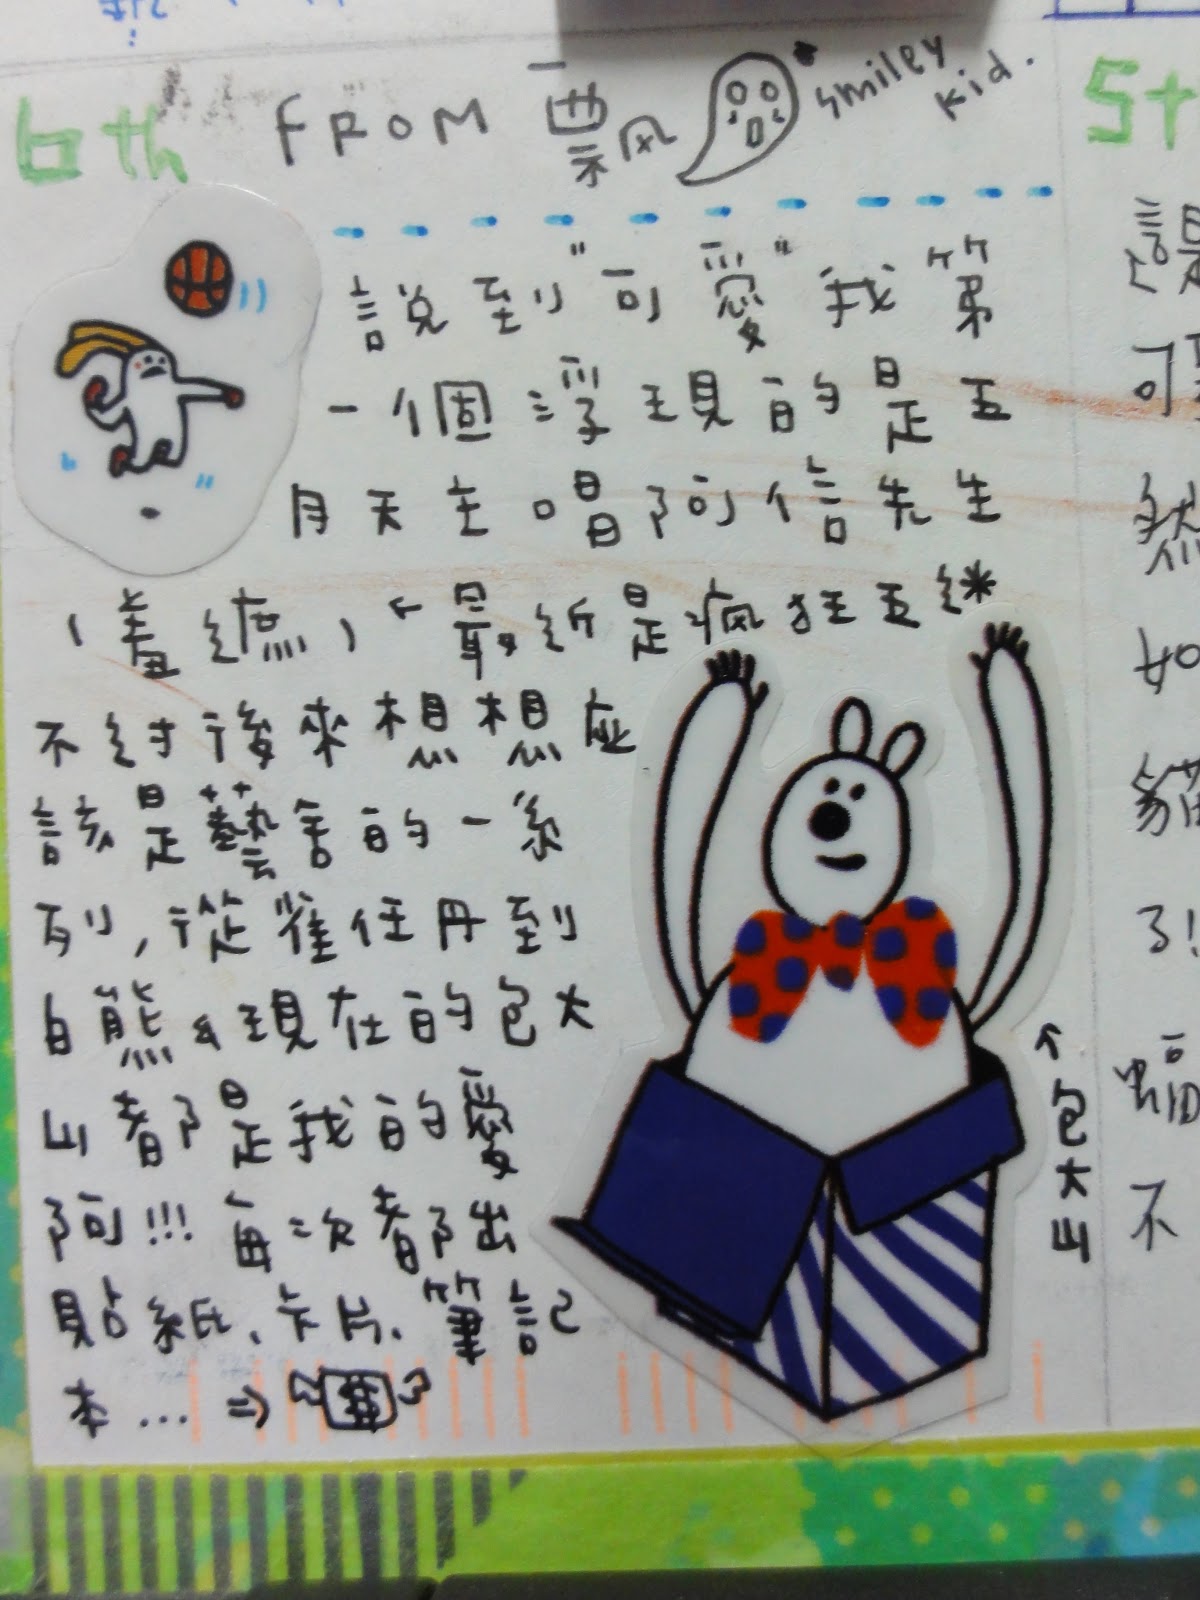 6th FROM 票风 smiley kid.
說到"可愛"我第
一個浮現的是五
月天主唱阿信先生
(羞遮)←最近是瘋狂五迷
不過後來想想應
該是藝舍的一系
列,從崔任丹到
白熊&現在的包大
山都是我的愛
阿!!! 每次都出
貼紙、卡片、筆記
本...⇒ $
↑包大山
5t
可
然
如
貓
了!
蝠
不